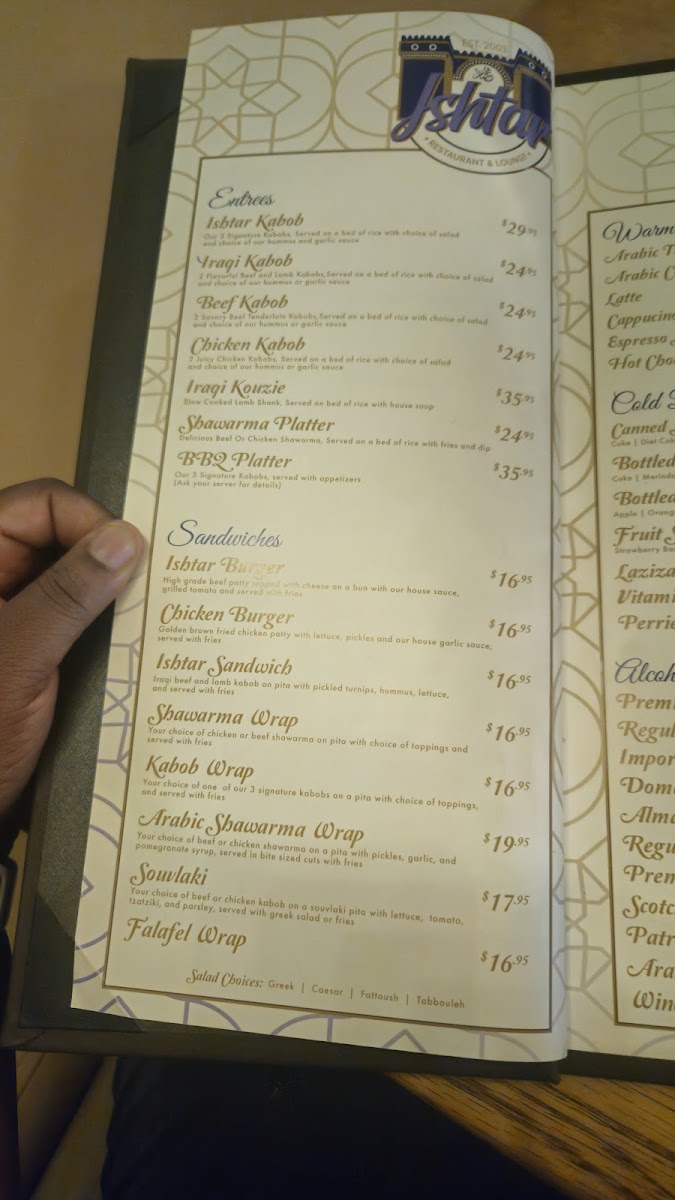 EST. 2003
Ishtar
• RESTAURANT & LOUNGE •
Entrees
Ishtar Kabob $29.95
Our 3 Signature Kabobs, Served on a bed of rice with choice of salad
and choice of our hummus and garlic sauce
Iraqi Kabob $24.95
2 Flavorful Beef and Lamb Kabobs, Served on a bed of rice with choice of salad
and choice of our hummus or garlic sauce
Beef Kabob $24.95
2 Savory Beef Tenderloin Kabobs, Served on a bed of rice with choice of salad
and choice of our hummus or garlic sauce
Chicken Kabob $24.95
2 Juicy Chicken Kabobs, Served on a bed of rice with choice of salad
and choice of our hummus or garlic sauce
Iraqi Kouzie $35.95
Slow Cooked Lamb Shank, Served on bed of rice with house soup
Shawarma Platter $24.95
Delicious Beef Or Chicken Shawarma, Served on a bed of rice with fries and dip
BBQ Platter $35.95
Our 3 Signature Kabobs, served with appetizers
(Ask your server for details)
Sandwiches
Ishtar Burger $16.95
High grade beef patty topped with cheese on a bun with our house sauce,
grilled tomato and served with fries
Chicken Burger $16.95
Golden brown fried chicken patty with lettuce, pickles and our house garlic sauce,
served with fries
Ishtar Sandwich $16.95
Iraqi beef and lamb kabob on pita with pickled turnips, hummus, lettuce,
and served with fries
Shawarma Wrap $16.95
Your choice of chicken or beef shawarma on pita with choice of toppings and
served with fries
Kabob Wrap $16.95
Your choice of one of our 3 signature kabobs on a pita with choice of toppings,
and served with fries
Arabic Shawarma Wrap $19.95
Your choice of beef or chicken shawarma on a pita with pickles, garlic, and
pomegranate syrup, served in bite sized cuts with fries
Souvlaki $17.95
Your choice of beef or chicken kabob on a souvlaki pita with lettuce, tomato,
tzatziki, and parzley, served with greek salad or fries
Falafel Wrap $16.95
Salad Choices: Greek | Caesar | Fattoush | Tabbouleh
Warm
Arabic T
Arabic C
Latte
Cappucino
Espresso
Hot Cho
Cold
Canned
Coke | Diet Cok
Bottled
Coke | Merinda
Bottled
Apple | Orang
Fruit S
Strawberry Ba
Laziza
Vitami
Perrie
Alcoh
Premi
Regul
Impor
Dome
Alma
Regu
Prem
Scotc
Patr
Ara
Win